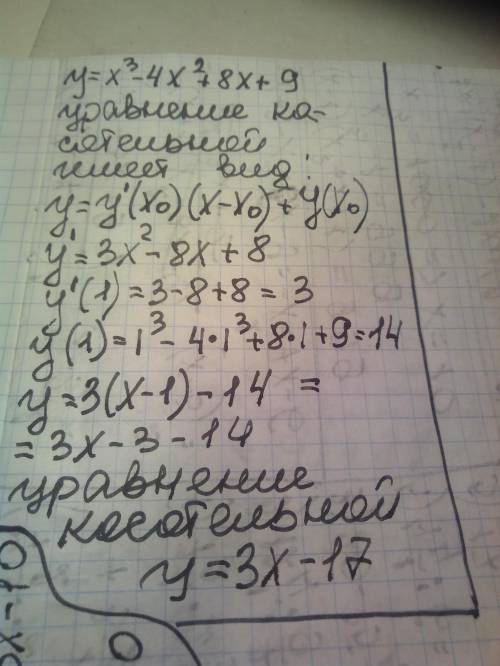 y=x³-4x²+8x+9
уравнение ка-
сательной
имеет вид:
y=y'(x₀)(x-x₀)+y(x₀)
y'=3x²-8x+8
y'(1)=3-8+8=3
y(1)=1³-4·1³+8·1+9=14
y=3(x-1)-14 =
=3x-3-14
уравнение
косательной
y=3x-17
x-10
0